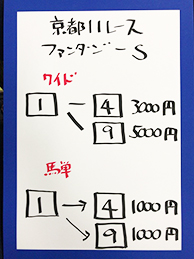 京都11レース
ファンタジーS
ワイド
1 4 3000円
9 5000円
馬単
1 → 4 1000円
→ 9 1000円